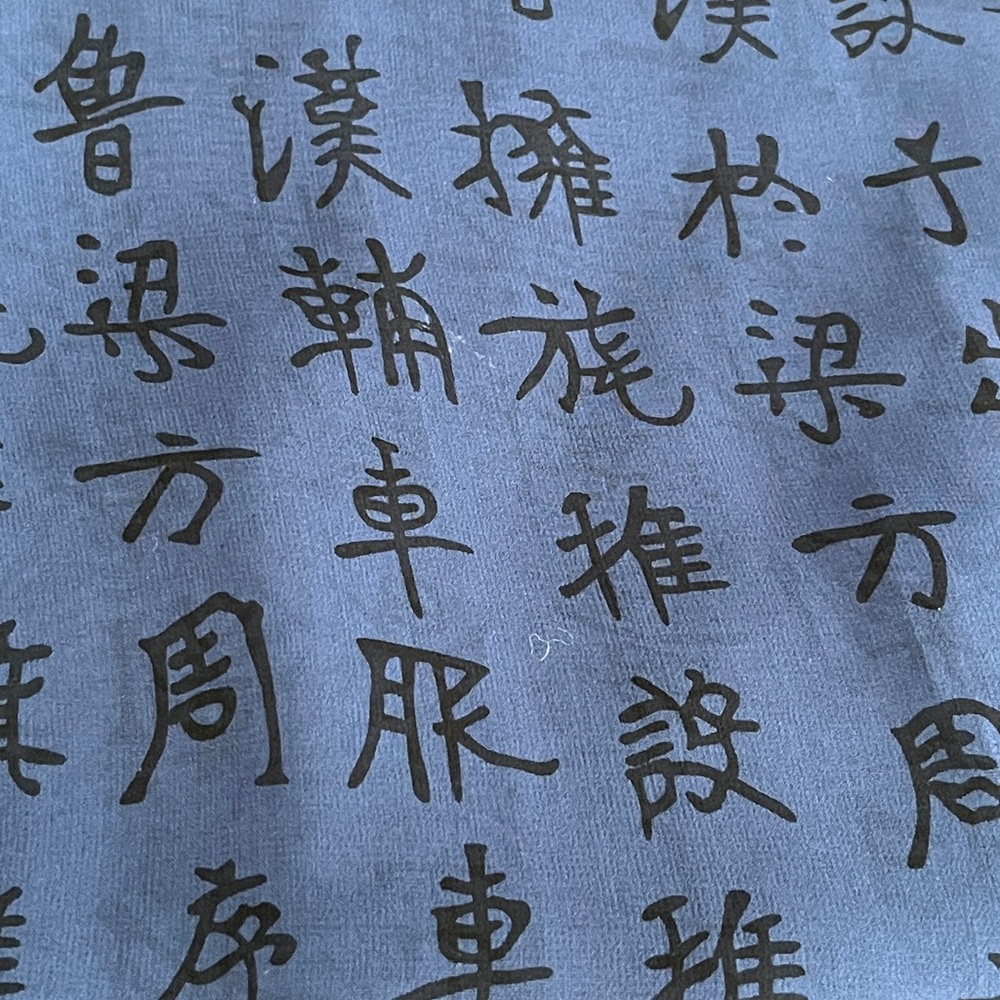 設于
漢於梁方周
擁旄推設推
漢輔車服車
魯梁方周序